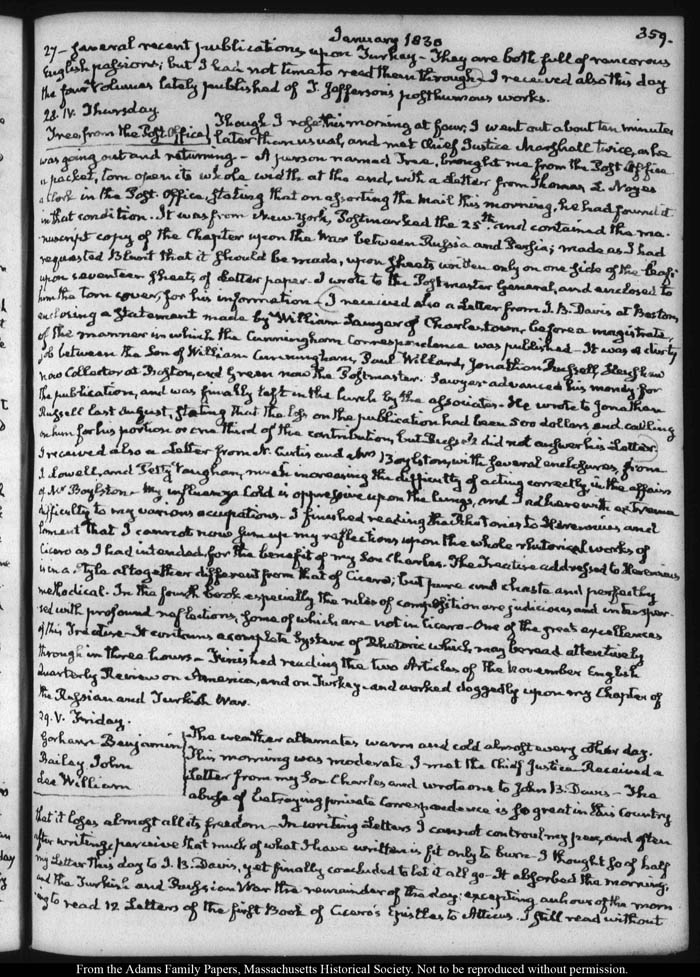 January 1830
359.
27 — several recent publications upon Turkey — They are both full of rancorous
English passions; but I had not time to read them through — I received also this day
the four Volumes lately published of T. Jefferson's posthumous works.
28. IV. Thursday
Tree from the Post Office
Though I rose this morning at four, I went out about ten minutes
later than usual, and met Chief Justice Marshall twice, as he
was going out and returning — A person named Tree, brought me from the Post Office
a packet, torn open its whole width at the end, with a Letter from Thomas L. Noyes
a Clerk in the Post Office, stating that on assorting the Mail this morning, he had found it
in that condition. It was from New York, Postmarked the 25th and contained the ma-
nuscript copy of the Chapter upon the War between Russia and Persia; made as I had
requested Blunt that it should be made, upon sheets written only on one side of the leaf
upon seventeen sheets of Letter paper. I wrote to the Postmaster General, and enclosed to
him the torn cover, for his information — I received also a Letter from J. B. Davis at Boston,
enclosing a statement made by William Sawyer of Charlestown, before a magistrate,
of the manner in which the Cunningham Correspondence was published — It was a dirty
job between the Son of William Cunningham, Paul Willard, Jonathan Russell,
now Collector at Boston, and Green now the Postmaster. Sawyer advanced his money for
the publication, and was finally left in the lurch by the associates — He wrote to Jonathan
Russell last August, stating that the loss on the publication had been 500 dollars and calling
on him for his portion or one third of the contribution, but Russell did not answer his Letter.
I received also a Letter from N. Curtis and Mrs Boylston, with several enclosures, from
J. Lowell, and Petty Vaughan, much increasing the difficulty of acting correctly in the affairs
of Mr Boylston — My influenza Cold is oppressive upon the lungs, and I adhere with extreme
difficulty to my various occupations. I finished reading the Rhetorics to Herennius and
lament that I cannot now sum up my reflections upon the whole rhetorical works of
Cicero as I had intended, for the benefit of my Son Charles. The Treatise addressed to Herennius
is in a style altogether different from that of Cicero; but pure and chaste and perfectly
methodical. In the fourth book especially the rules of composition are judicious and intersper-
sed with profound reflections, some of which are not in Cicero — One of the great excellences
of this Treatise — It contains a complete System of Rhetoric which may be read attentively
through in three hours — Finished reading the two Articles of the November English
Quarterly Review on America, and on Turkey — and worked doggedly upon my Chapter of
the Russian and Turkish War.
29. V. Friday.
Gorham Benjamin
Bailey John
Lee William
The weather alternates warm and cold almost every other day.
This morning was moderate I met the Chief Justice — Received a
Letter from my Son Charles and wrote one to John B. Davis — The
abuse of betraying private Correspondence is so great in this Country
that it loses almost all its freedom — In writing Letters I cannot controul my pen, and often
after writing perceive that much of what I have written is fit only to burn — I thought so of half
my Letter this day to J. B. Davis, yet finally concluded to let it all go — It absorbed the morning;
and the Turkish and Russian War the remainder of the day: excepting an hour of the morn-
ing to read 12 Letters of the first Book of Cicero's Epistles to Atticus. I still read without
From the Adams Family Papers, Massachusetts Historical Society. Not to be reproduced without permission.